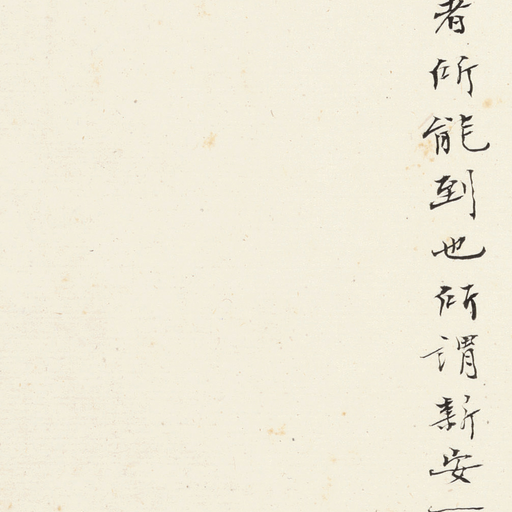 者所能到也所謂新安